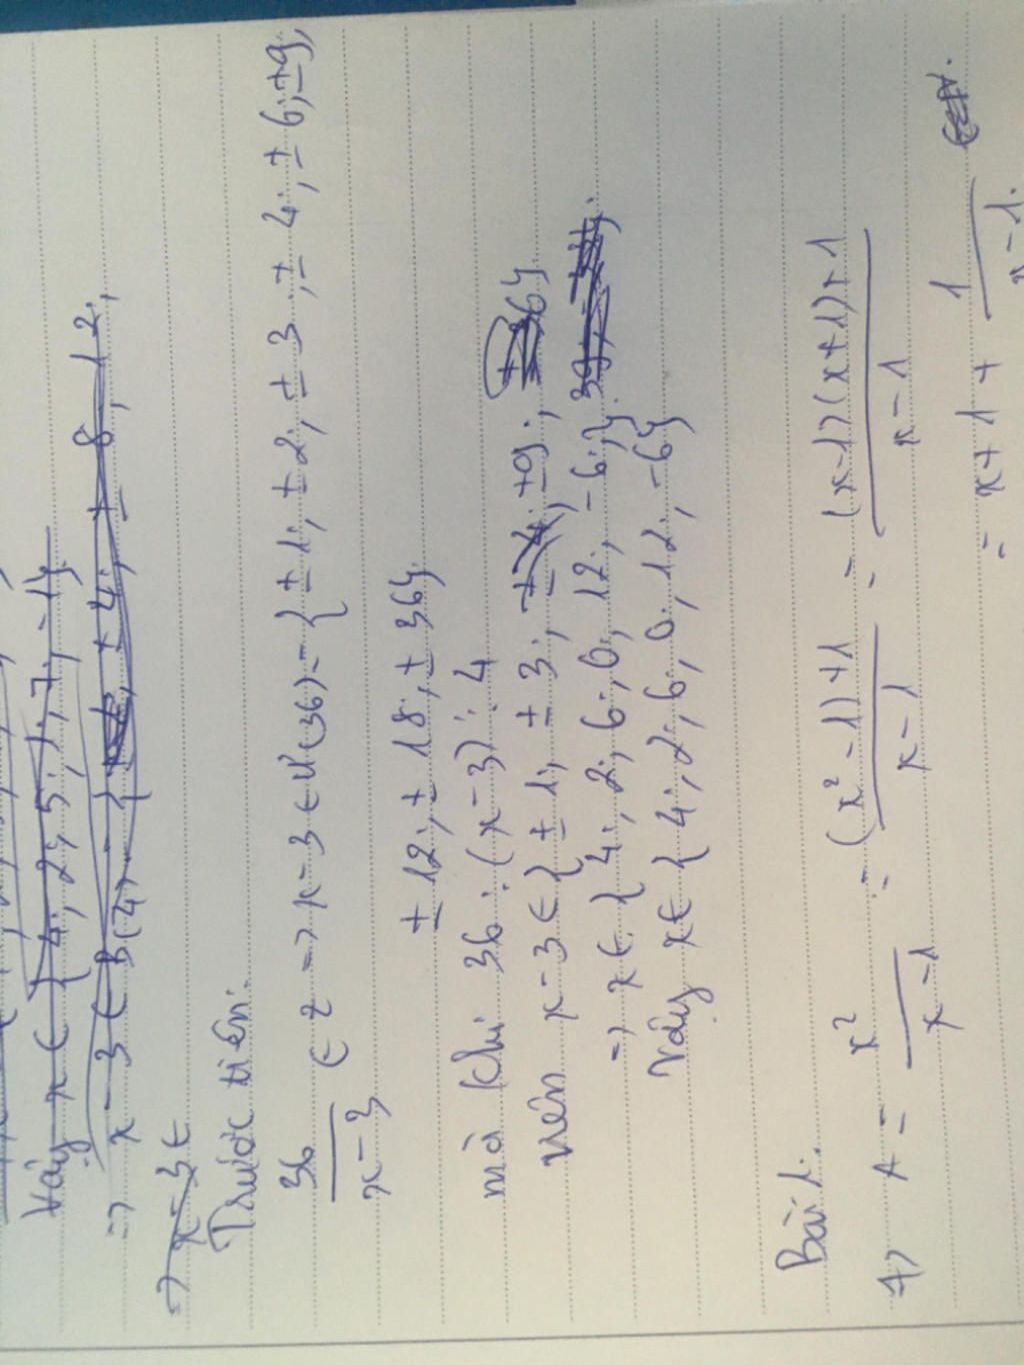 Vậy x ∈ {4; 2; 5; 1; 7; -1}
=> x - 3 ∈ B(4) = { ± 4; ± 8; 12;
=> x - 3 ∈
Trước tiên:
36/(x-3) ∈ z => x - 3 ∈ Ư(36) = {± 1; ± 2; ± 3; ± 4; ± 6; ± 9;
± 12; ± 18; ± 36}
mà khi 36 : (x - 3) ⋮ 4
nên x - 3 ∈ {± 1; ± 3; ± 9; }
=> x ∈ {4; 2; 6; 0; 12; -6; }
Vậy x ∈ {4; 2; 6; 0; 12; -6}
Bài 1:
1) A = x²/(x-1) = ((x² - 1) + 1)/(x - 1) = ((x-1)(x+1)+1)/(x-1)
= x + 1 + 1/(x-1).